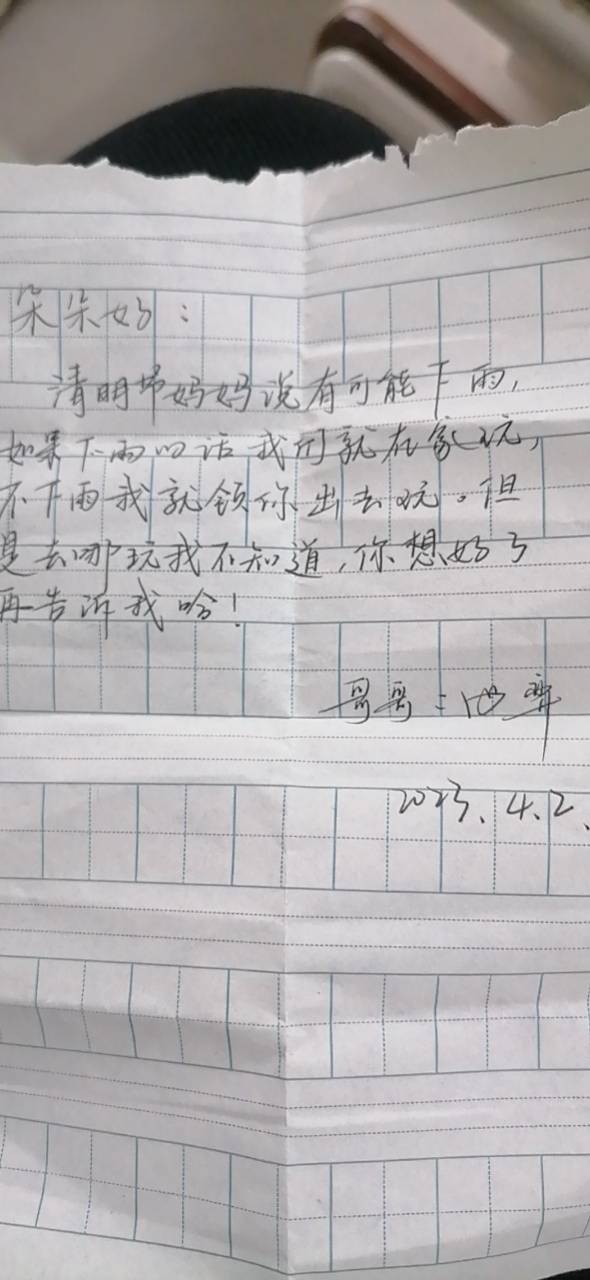 朵朵好：
清明节妈妈说有可能下雨，
如果下雨的话我们就在家玩，
不下雨我就领你出去玩。但
是去哪玩我不知道，你想好了
再告诉我哈！
哥哥：
2023.4.2.